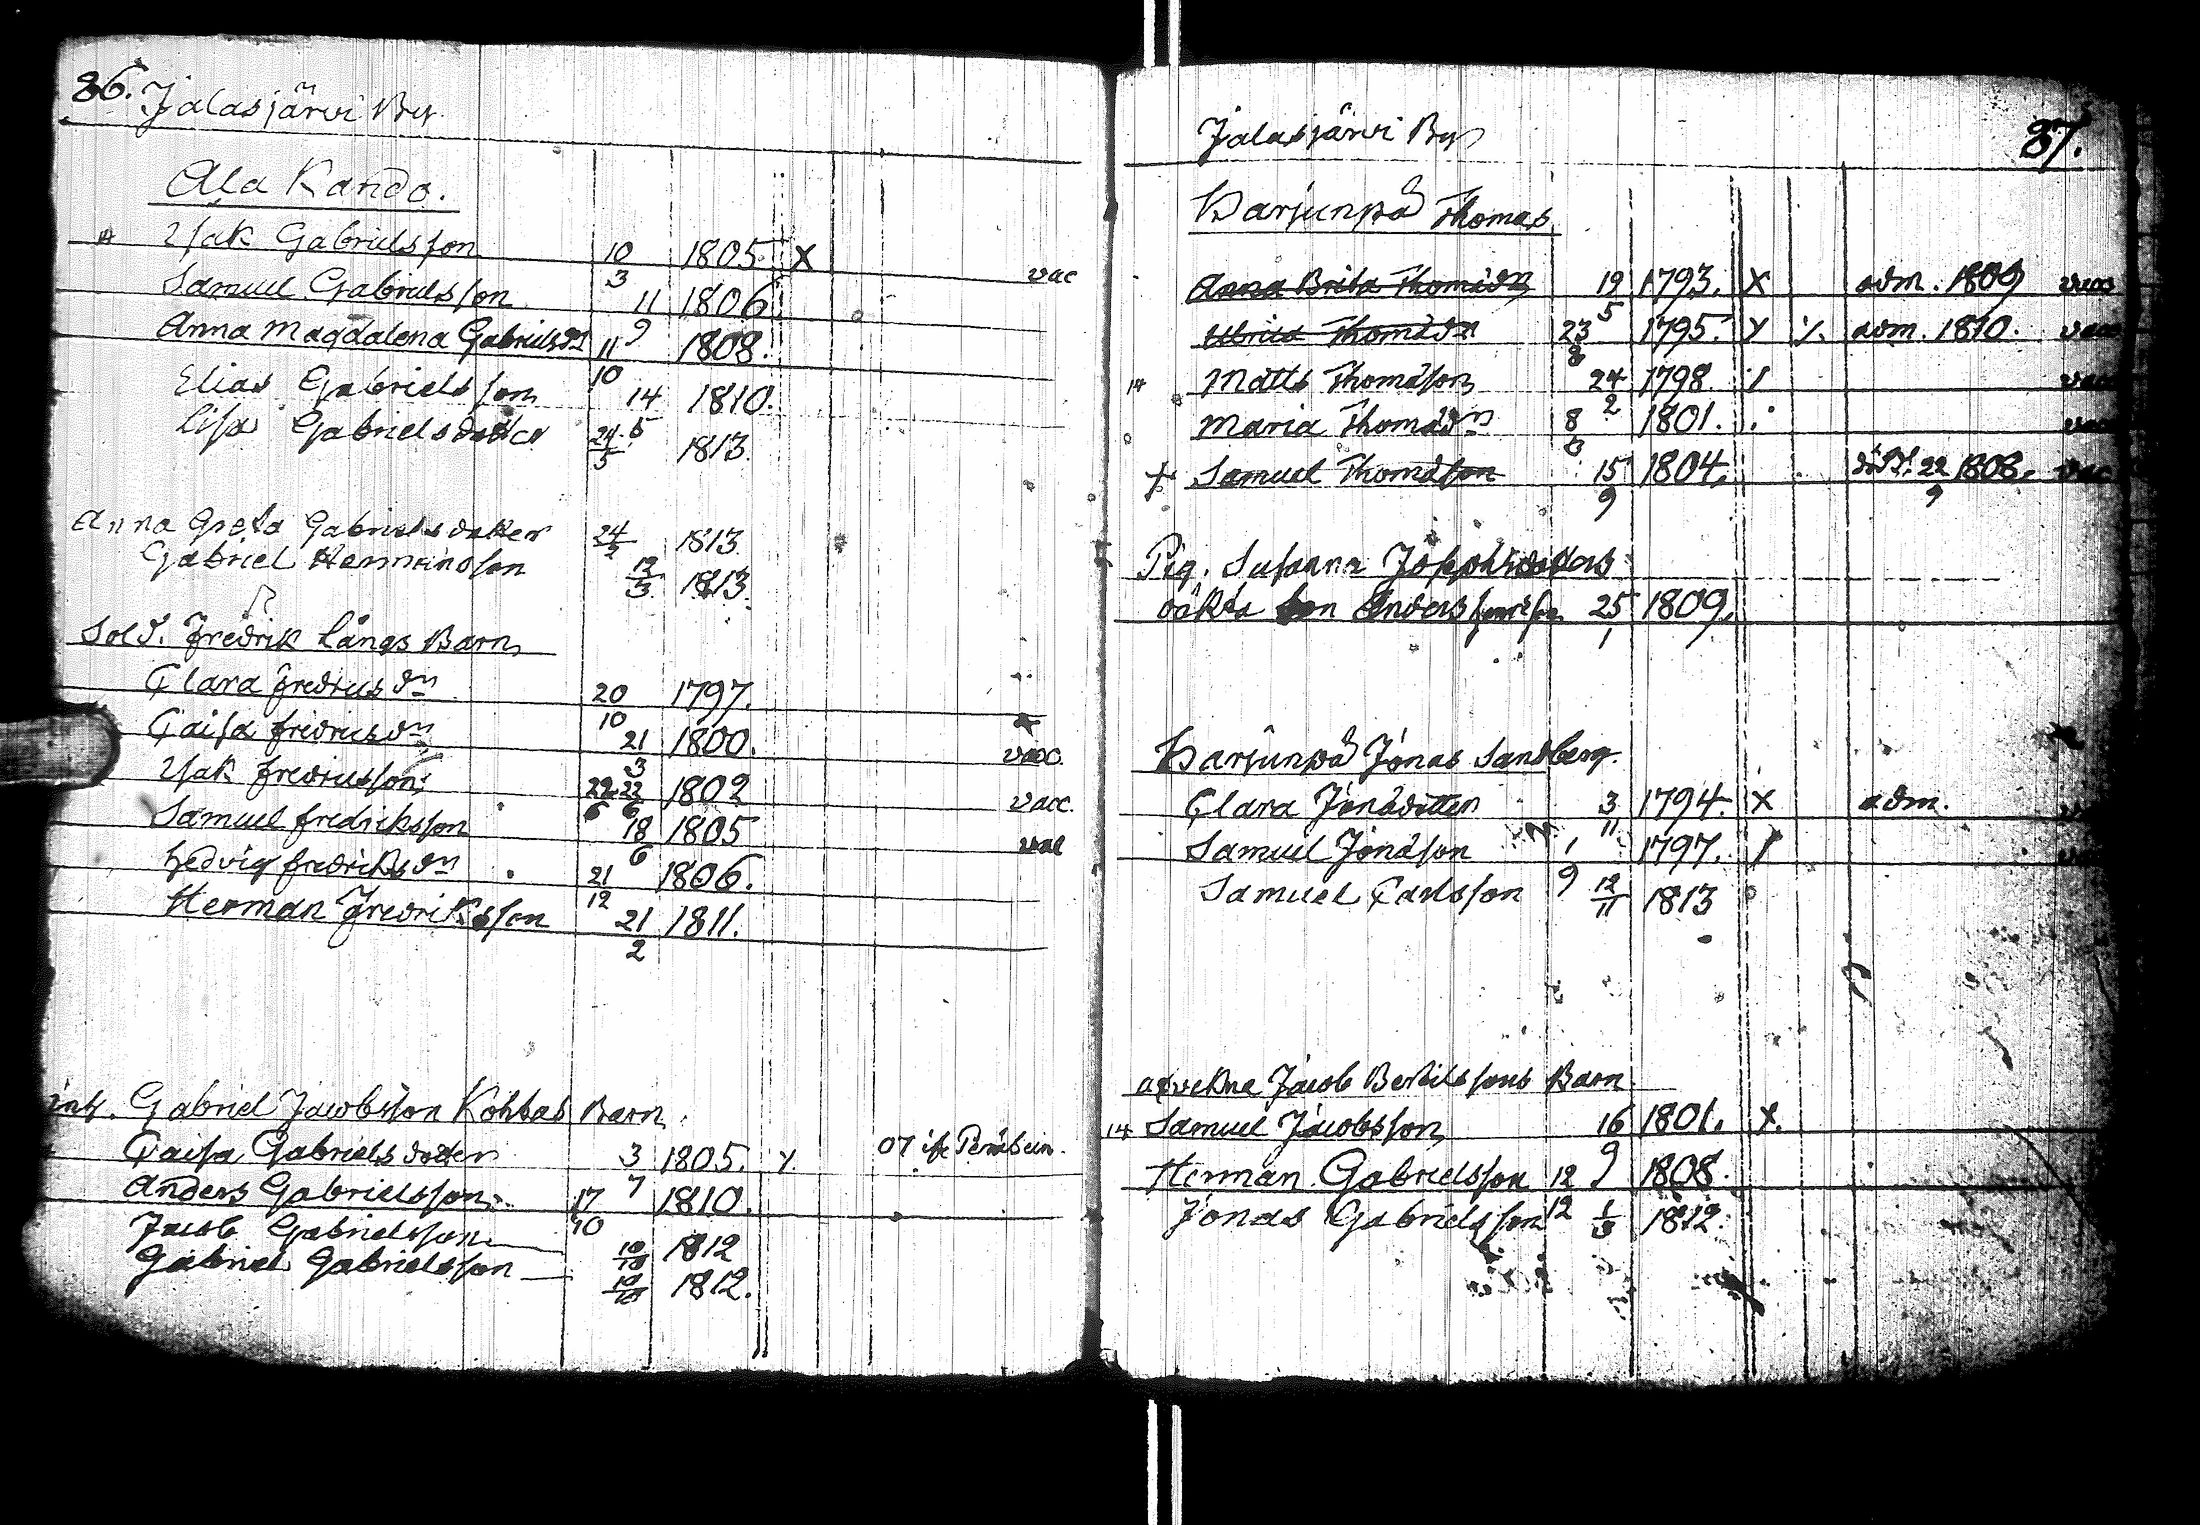 86. Jalasjärvi By.
Ala Kando.
Isak Gabrielsson 10/3 1805. X vac
Samuel Gabrielsson 11/9 1806
Anna Magdalena Gabrielsdr 11/10 1808.
Elias Gabrielsson 14/5 1810.
Lisa Gabrielsdotter 24/5 1813
Anna Greta Gabrielsdotter 24/2 1813
Gabriel Hermansson 12/3 1813.
Sold. Fredrik Långs Barn
Clara Fredricsdn 20/10 1797.
Caisa Fredricsdn 21/3 1800. vacc.
Isak Fredricsson 22/6 1802 vacc.
Samuel Fredriksson 18/6 1805 vac
Hedvig Fredriksdn 21/12 1806.
Herman Fredriksson 21/2 1811.
inh. Gabriel Jacobsson Kohtas Barn.
Caisa Gabrielsdotter 3/7 1805. 07
Anders Gabrielsson 17/10 1810.
Jacob Gabrielsson 10/10 1812
Gabriel Gabrielsson 10/10 1812.
Jalasjärvi By 87.
Harjunpä Thomas
Anna Brita Thomædn 19/5 1793. X adm. 1809 vacc
Ulrica Thomædn 23/8 1795. adm. 1810. vac
14 Matts Thomason 24/2 1798. vac
Maria Thomædn 8/6 1801. vac
+ Samuel Thomason 15/9 1804. död d. 22/9 1808. vac
Pig. Susanna Josephsdotters
oäkta son Anders 25/1 1809.
Harjunpä Jonas Sandberg.
Clara Jonædotter 3/11 1794. X adm.
Samuel Jonason 1/9 1797.
Samuel Carlsson 12/11 1813
afvekne Jacob Bertilssons Barn
14 Samuel Jacobsson 16/9 1801. X.
Herman Gabrielsson 12 1808.
Jonas Gabrielsson 12 1812.